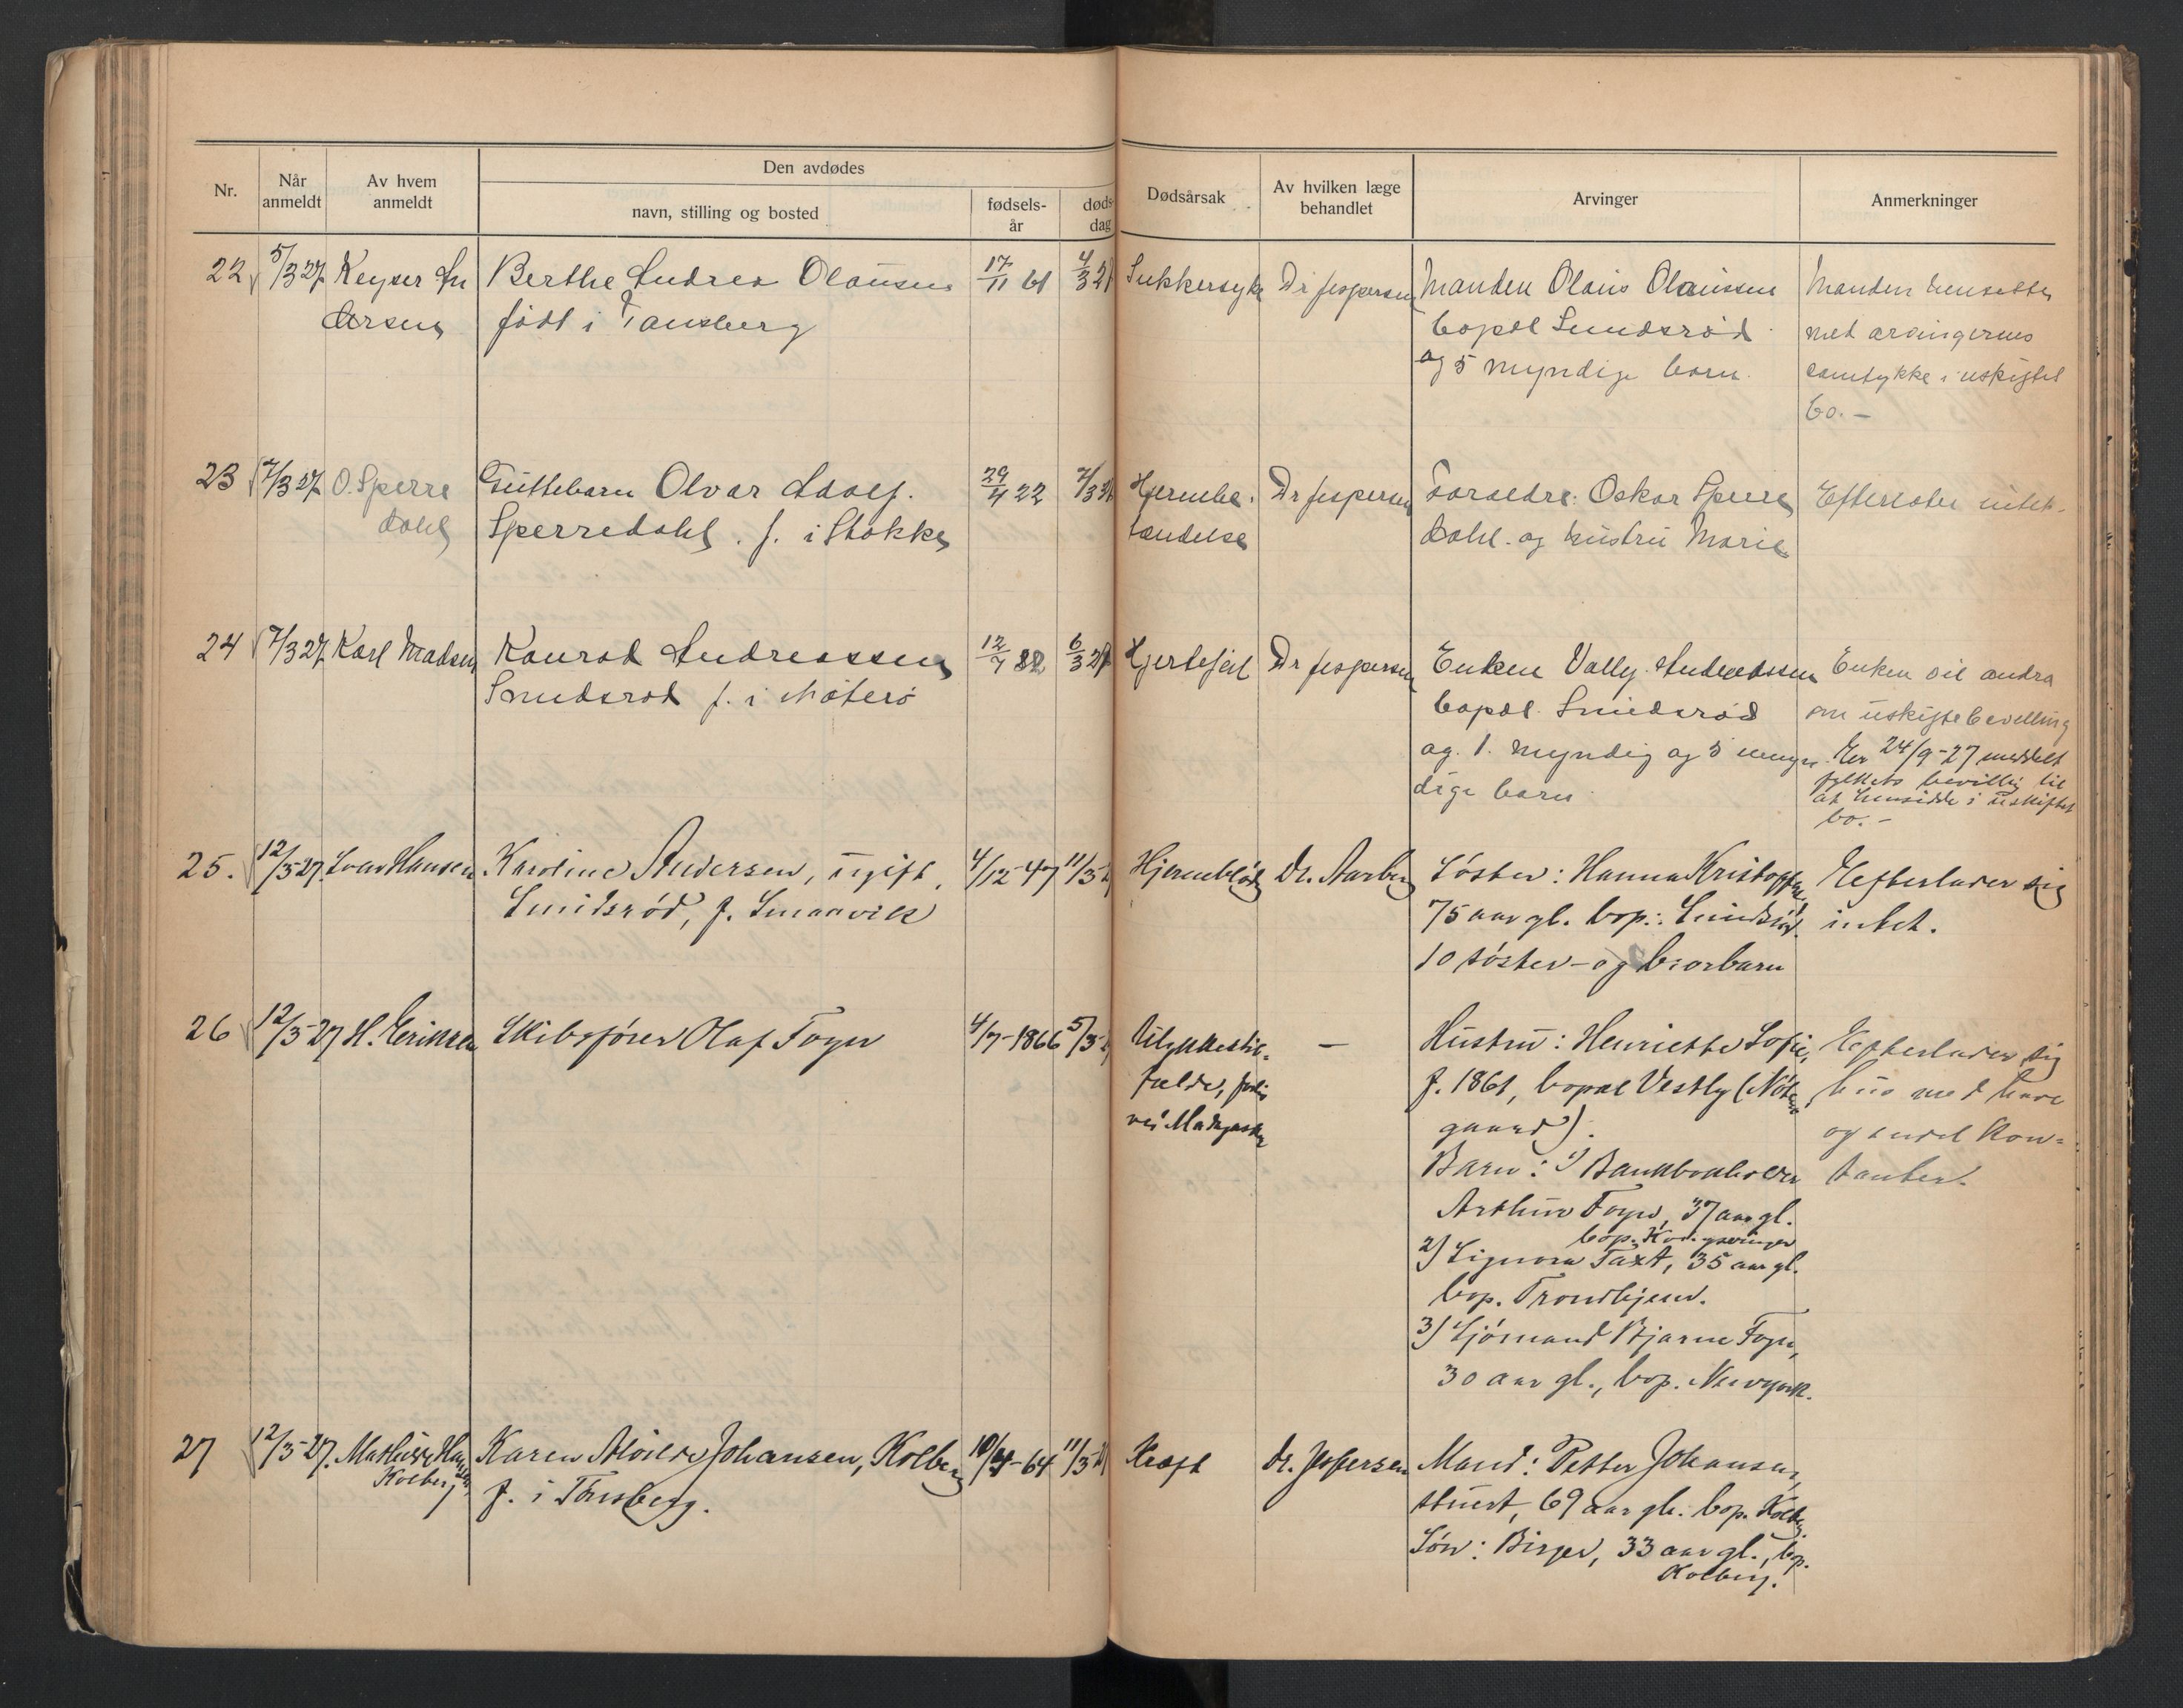 Nr.
Når anmeldt
Av hvem anmeldt
Den avdødes
navn, stilling og bosted
fødsels- år
døds- dag
Dødsårsak
Av hvilken læge behandlet
Arvinger
Anmerkninger
22 5/3 27 Keyser
Berthe Andrea Olaussen 17/11 61 4/3 27
født i Tønsberg
Sukkersyke Dr Jespersen
Manden Olaus Olaussen
bopæl Smidsrød
og 5 myndige barn.
Manden hensitter
med arvingernes
samtykke i uskiftet
bo. –
23 7/3 27 O. Sperre
dahl
Guttebarn Olvar Adolf
Sperredahl. f. i Stokke
29/4 22 7/3
Hjernebe-
tændelse
Dr Jespersen
Forældre: Oskar Sperre
dahl. og hustru Marie
Efterlater intet.
24 7/3 27 Karl Madsen
Konrad Andreassen 12/7 82 6/3 27
Smidsrød f. i Nøterø
Hjertefeil Dr Jespersen
Enken Vally Andreassen
bopæl Smidsrød
og 1 myndig og 5 umyn
dige barn
Enken vil andra
om uskiftebevilling
Er 24/9-27 meddelt
fylkets bevillig til
at hensidde i uskiftet
bo. –
25. 12/3-27. Hansen
Karoline Andersen, ugift, 4/12-47 11/3-
Smidsrød, f. Smaavik
Hjerneblød. Dr. Aarberg
Søster: Hanna Kristoffersen
75 aar gl. bop.: Smidsrød.
10 søster- og brorbarn
Efterlader sig
intet.
26 12/3-27 H. Eriksen
Skibsfører Olaf Foyn 4/7-1866 5/3-
Ulykkestil-
fælde,
ved Madagaskar
–
Hustru: Henriette Sofie,
f. 1861, bopæl Vestly (Nøterø
gaard).
Barn: 1) Bankbokholder
Arthur Foyn, 37 aar gl.
bop. Kongsvinger
2) Signora Taxt, 35 aar gl.
bop. Trondhjem.
3) Sjømand Bjarne Foyn,
30 aar gl., bop. Newyork.
Efterlader sig
hus med have
og endel kon-
tanter.
27 12/3-27. Mathilde Hansen,
Kolberg
Karen Alvilde Johansen, Kolberg 10/4-64 11/3-
f. i Tønsberg.
Kræft Dr. Jespersen
Mand: Petter Johansen,
stuert, 69 aar gl. bop. Kolberg
Søn: Birger, 33 aar gl., bop.
Kolberg.